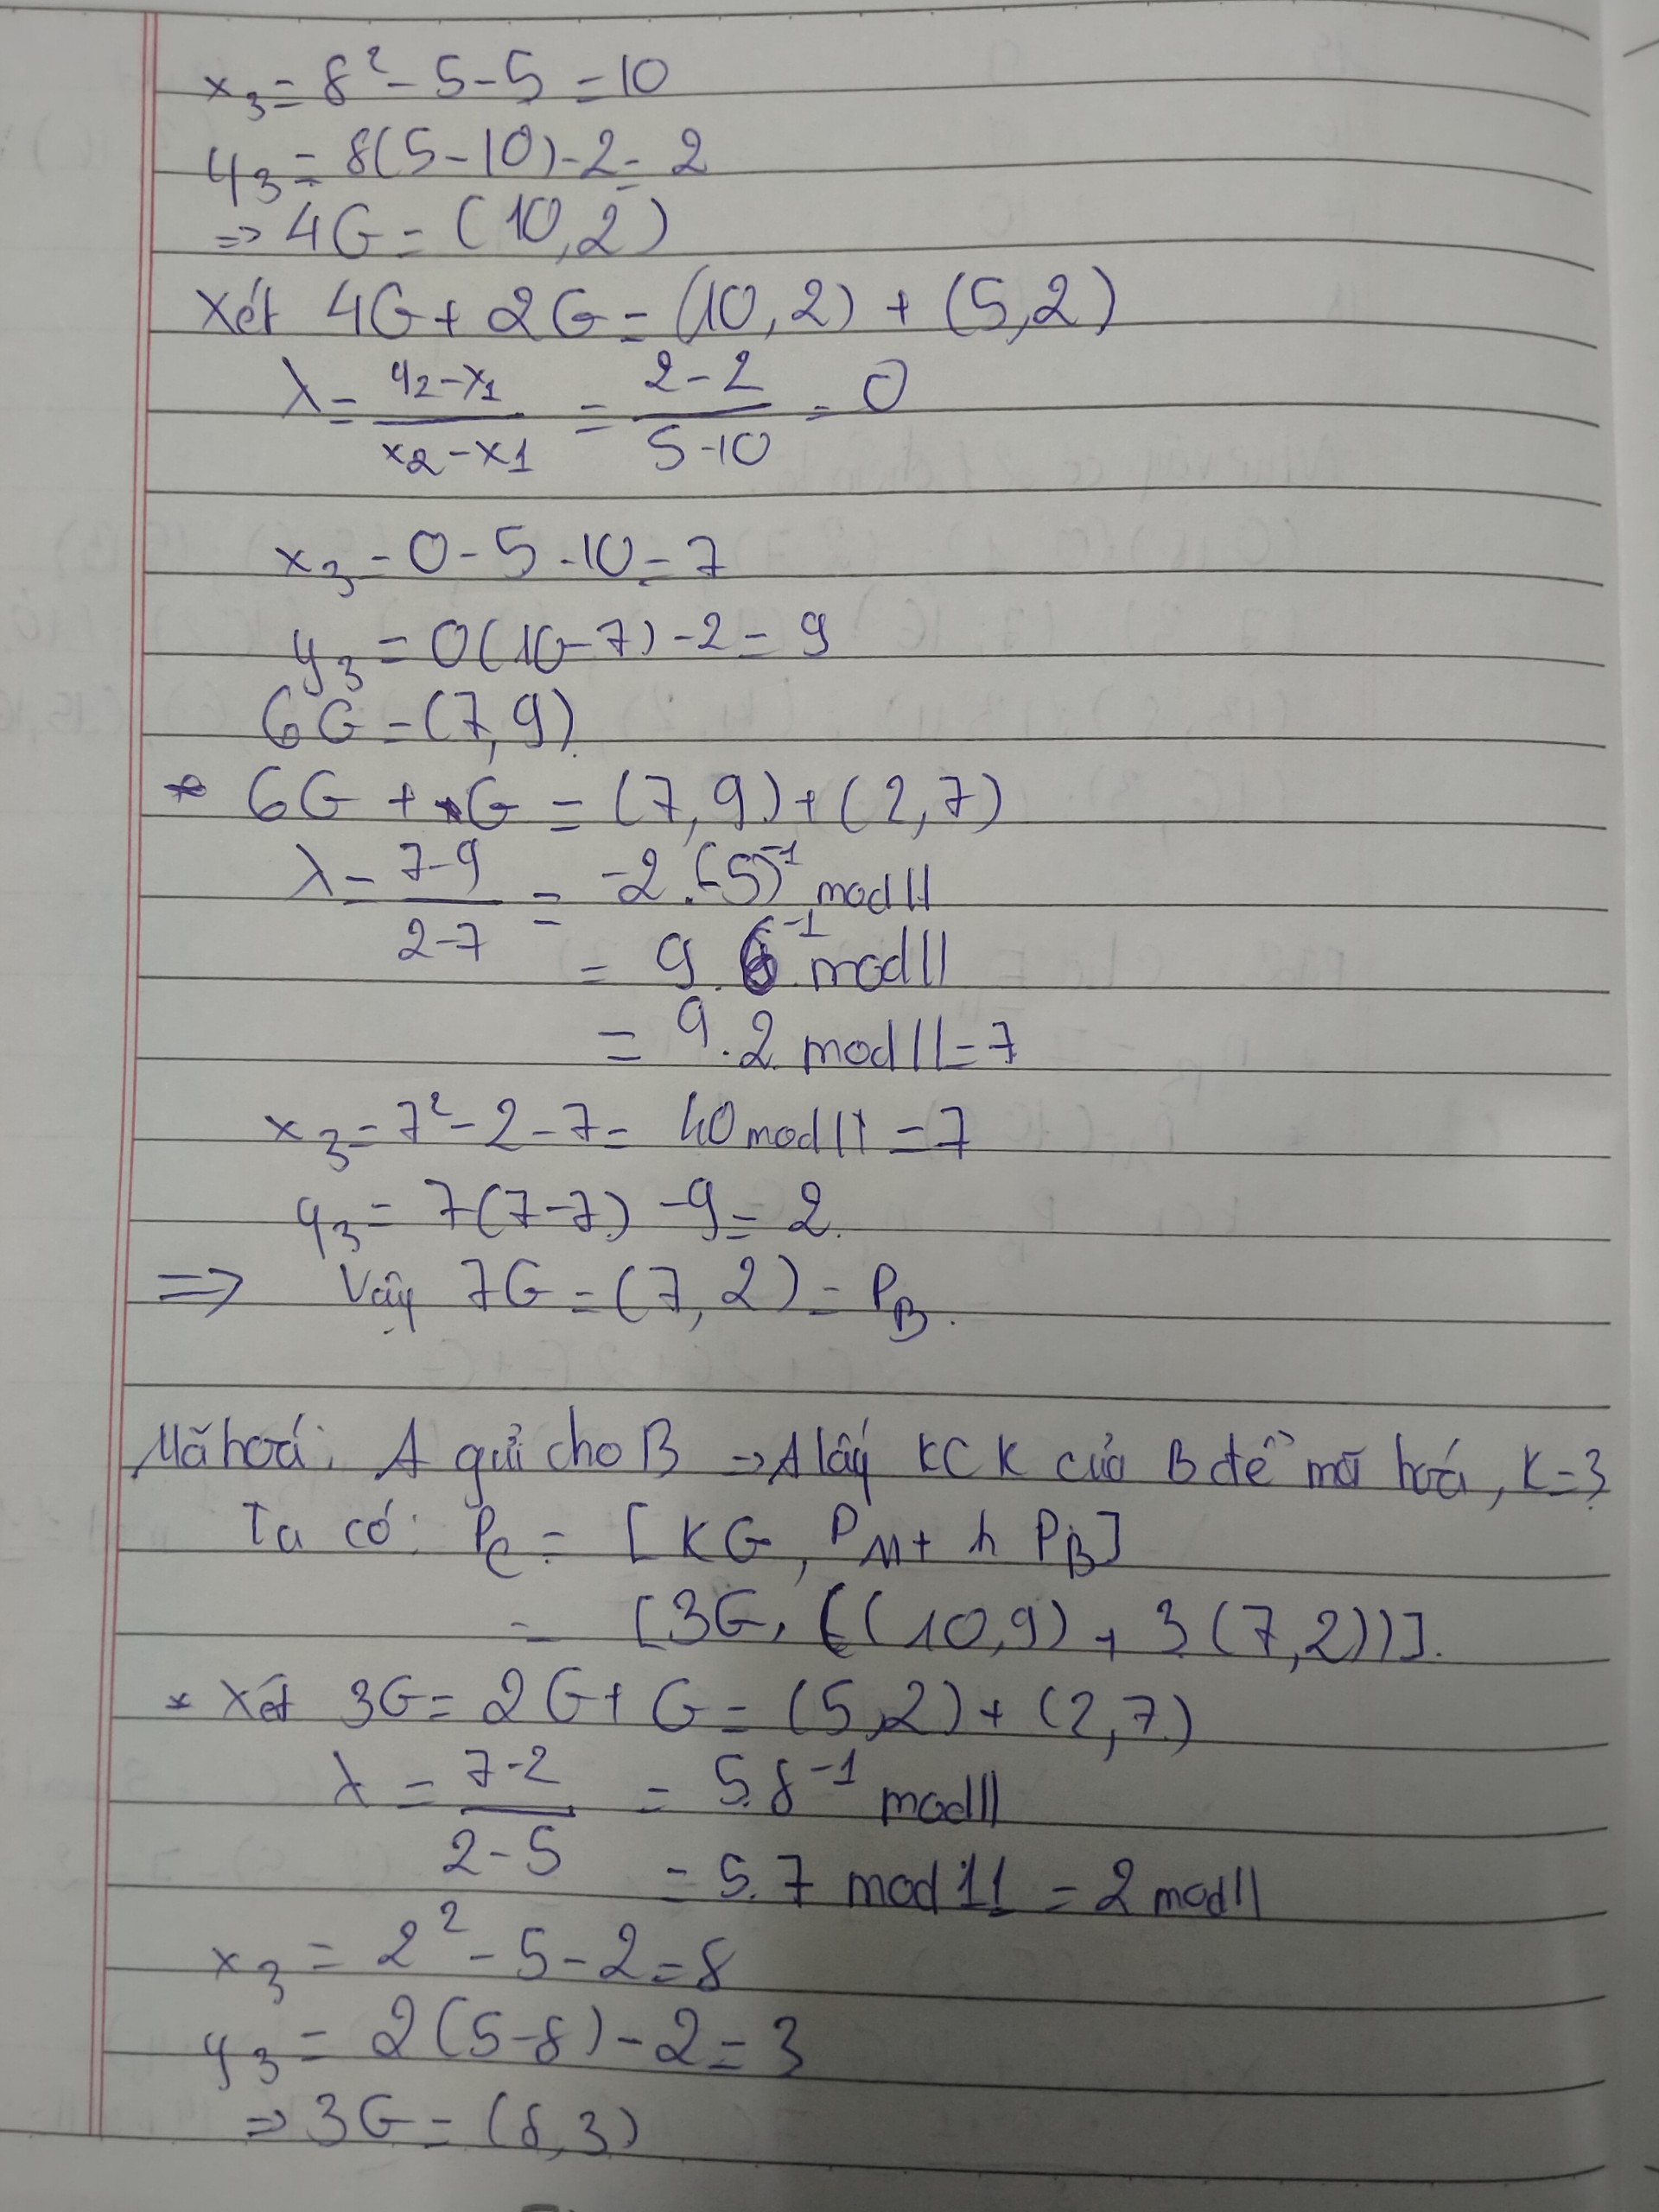 x₃ = 8² - 5 - 5 = 10
y₃ = 8(5 - 10) - 2 = 2
=> 4G = (10, 2)
Xét 4G + 2G = (10, 2) + (5, 2)
λ = (y₂ - x₁)/(x₂ - x₁) = (2 - 2)/(5 - 10) = 0
x₃ = 0 - 5 - 10 = 7
y₃ = 0(10 - 7) - 2 = 9
6G = (7, 9)
* 6G + G = (7, 9) + (2, 7)
λ = (7 - 9)/(2 - 7) = -2.(-5)⁻¹ mod 11
= 9.6⁻¹ mod 11
= 9.2 mod 11 = 7
x₃ = 7² - 2 - 7 = 40 mod 11 = 7
y₃ = 7(7 - 7) - 9 = 2.
=> Vậy 7G = (7, 2) = P_B.
Mã hoá: A gửi cho B => A lấy KCK của B để mã hoá, K = 3
Ta có: P_C = [KG, P_M + h P_B]
= [3G, ((10, 9) + 3(7, 2))].
* Xét 3G = 2G + G = (5, 2) + (2, 7)
λ = (7 - 2)/(2 - 5) = 5.8⁻¹ mod 11
= 5.7 mod 11 = 2 mod 11
x₃ = 2² - 5 - 2 = 8
y₃ = 2(5 - 8) - 2 = 3
=> 3G = (8, 3)